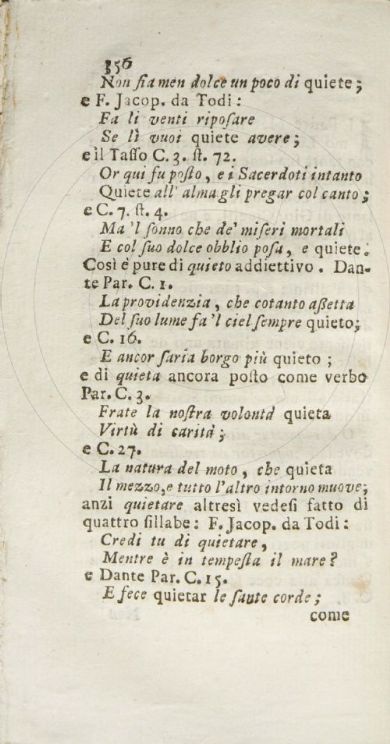 356
Non ſia men dolce un poco di quiete;
e F. Jacop. da Todi:
Fa li venti ripoſare
Se lì vuoi quiete avere;
e il Taſſo C. 3. ſt. 72.
Or qui fu poſto, e i Sacerdoti intanto
Quiete all' alma gli pregar col canto;
e C. 7. ſt. 4.
Ma 'l ſonno che de' miſeri mortali
E col ſuo dolce obblio poſa, e quiete.
Così è pure di quieto addiettivo. Dan-
te Par. C. 1.
La providenzia, che cotanto aſſetta
Del ſuo lume fa 'l ciel ſempre quieto;
e C. 16.
E ancor ſaria borgo più quieto;
e di quieta ancora poſto come verbo
Par. C. 3.
Frate la noſtra volontà quieta
Virtù di carità;
e C. 27.
La natura del moto, che quieta
Il mezzo, e tutto l'altro intorno muove;
anzi quietare altresì vedeſi fatto di
quattro ſillabe: F. Jacop. da Todi:
Credi tu di quietare,
Mentre è in tempeſta il mare?
e Dante Par. C. 15.
E fece quietar le ſante corde;
come